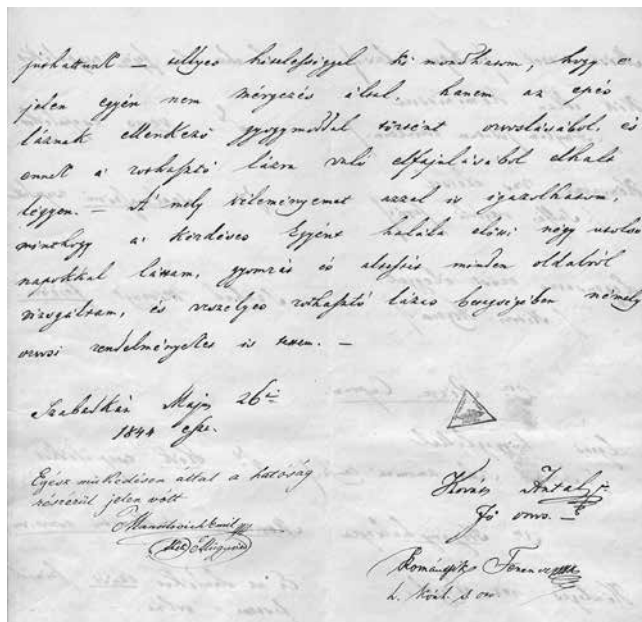 júthattunk — tellyes hitelességgel ki mondhatom, hogy e
jelen egyén nem mérgezés által, hanem az epés
láznak ellenkező gyógymóddal történt orvoslásából, és
ennek a rothasztó lázra való elfajulásából elhalt
légyen. — A mely véleményemet azzal is igazolhatom,
minthogy a kérdéses Egyént halála előtti négy utolsó
napokkal láttam, gyomrát és altestét minden oldalról
vizsgáltam, és veszélyes rothasztó lázos betegségében némely
orvosi rendelményeket is tettem. —
Szabatkán Május 26án
1844 eszt.
Egész működésen által a hatóság
részéről jelen volt
Kovács Antal
fő orvos
Ferencz